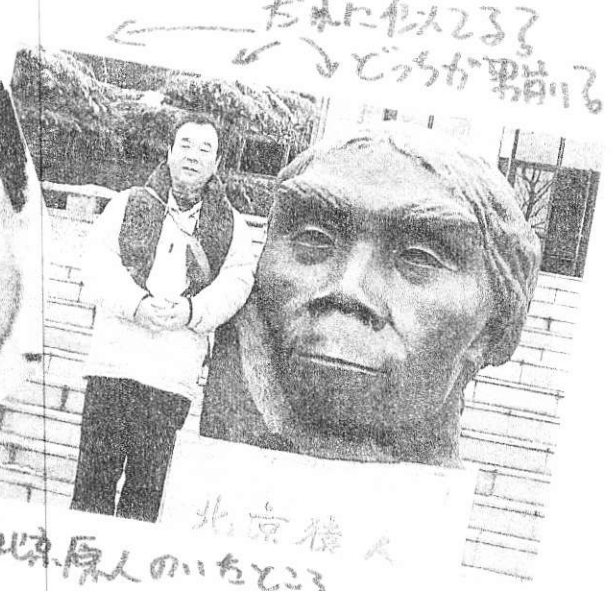 だれに似てる?
どっちが男前!?
北京猿人
北京原人のいたところ